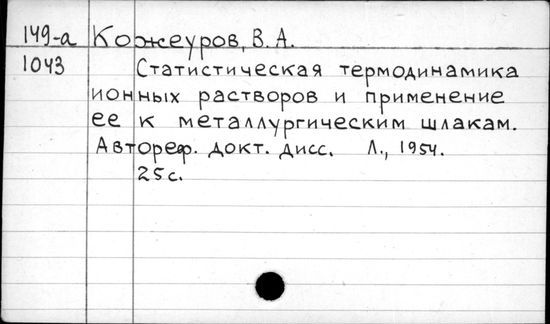 149-а Кожеуров, В. А.
1043 Статистическая термодинамика
ионных растворов и применение
ее к металлургическим шлакам.
Автореф. докт. дисс. Л., 1954.
25с.